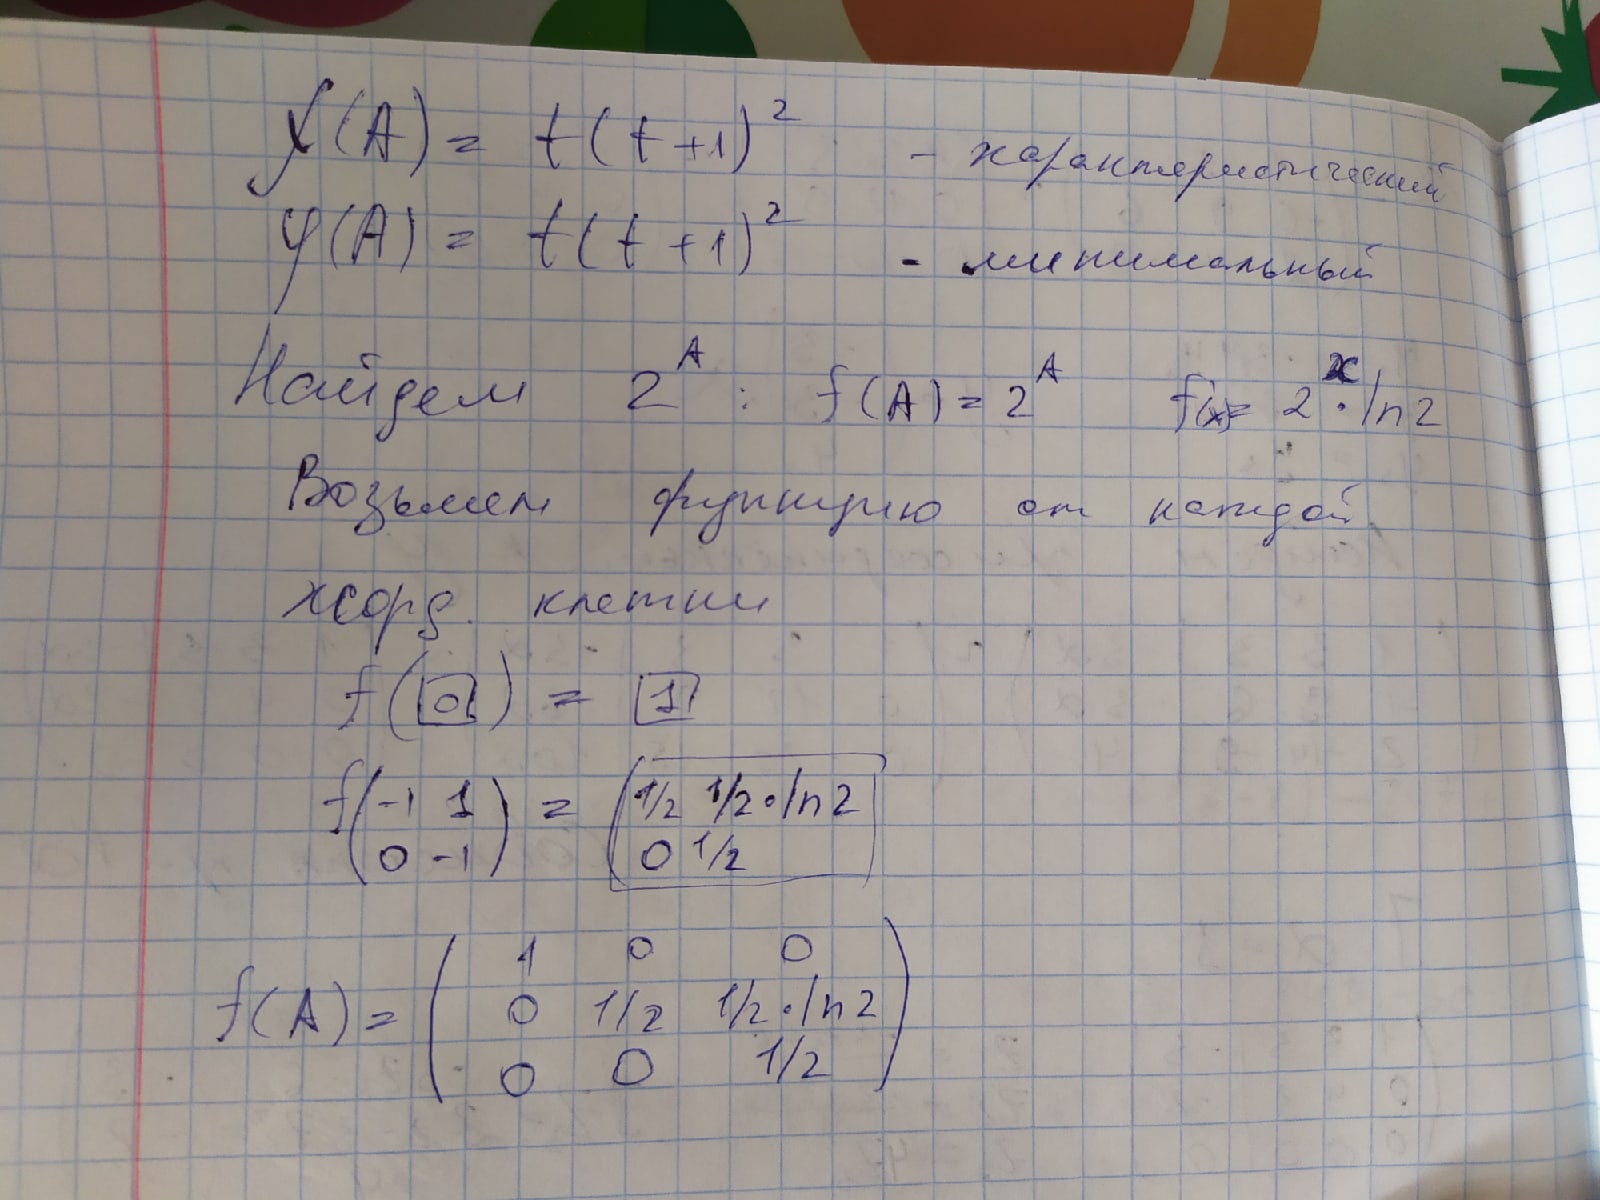 χ(A) = t(t+1)² - характеристический
φ(A) = t(t+1)² - минимальный
Найдем 2^A : f(A) = 2^A f(x)= 2^x · ln2
Возьмем функцию от каждой
жорд. клетки
f([0]) = [1]
f(-1 1 0 -1) = (1/2 1/2·ln2
0 1/2)
f(A) = (1 0 0
0 1/2 1/2·ln2
0 0 1/2)